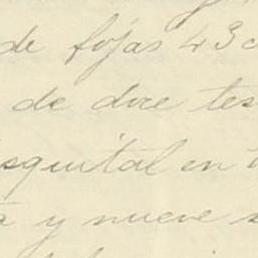 de fojas 43
de doce tes
squital en
y nueve